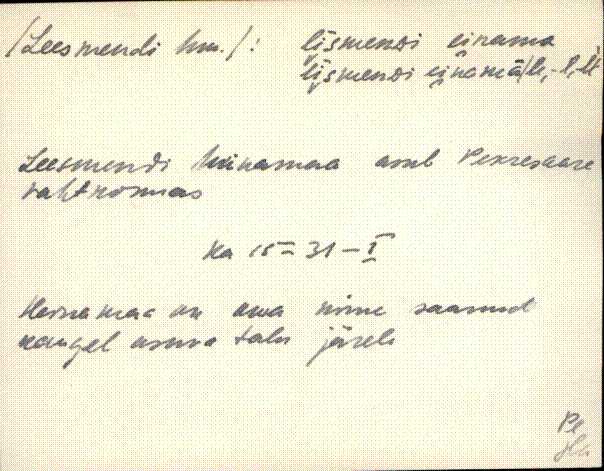 /Leesmendi hm./: ljsmendi einama
ljsmendi einamā/le, -l, -lt
Leesmendi heinamaa asub Peressaare
vahtkonnas
ka 15 = 31 – I
Heinamaa on oma nime saanud
kaugel asuva talu järele
Pl